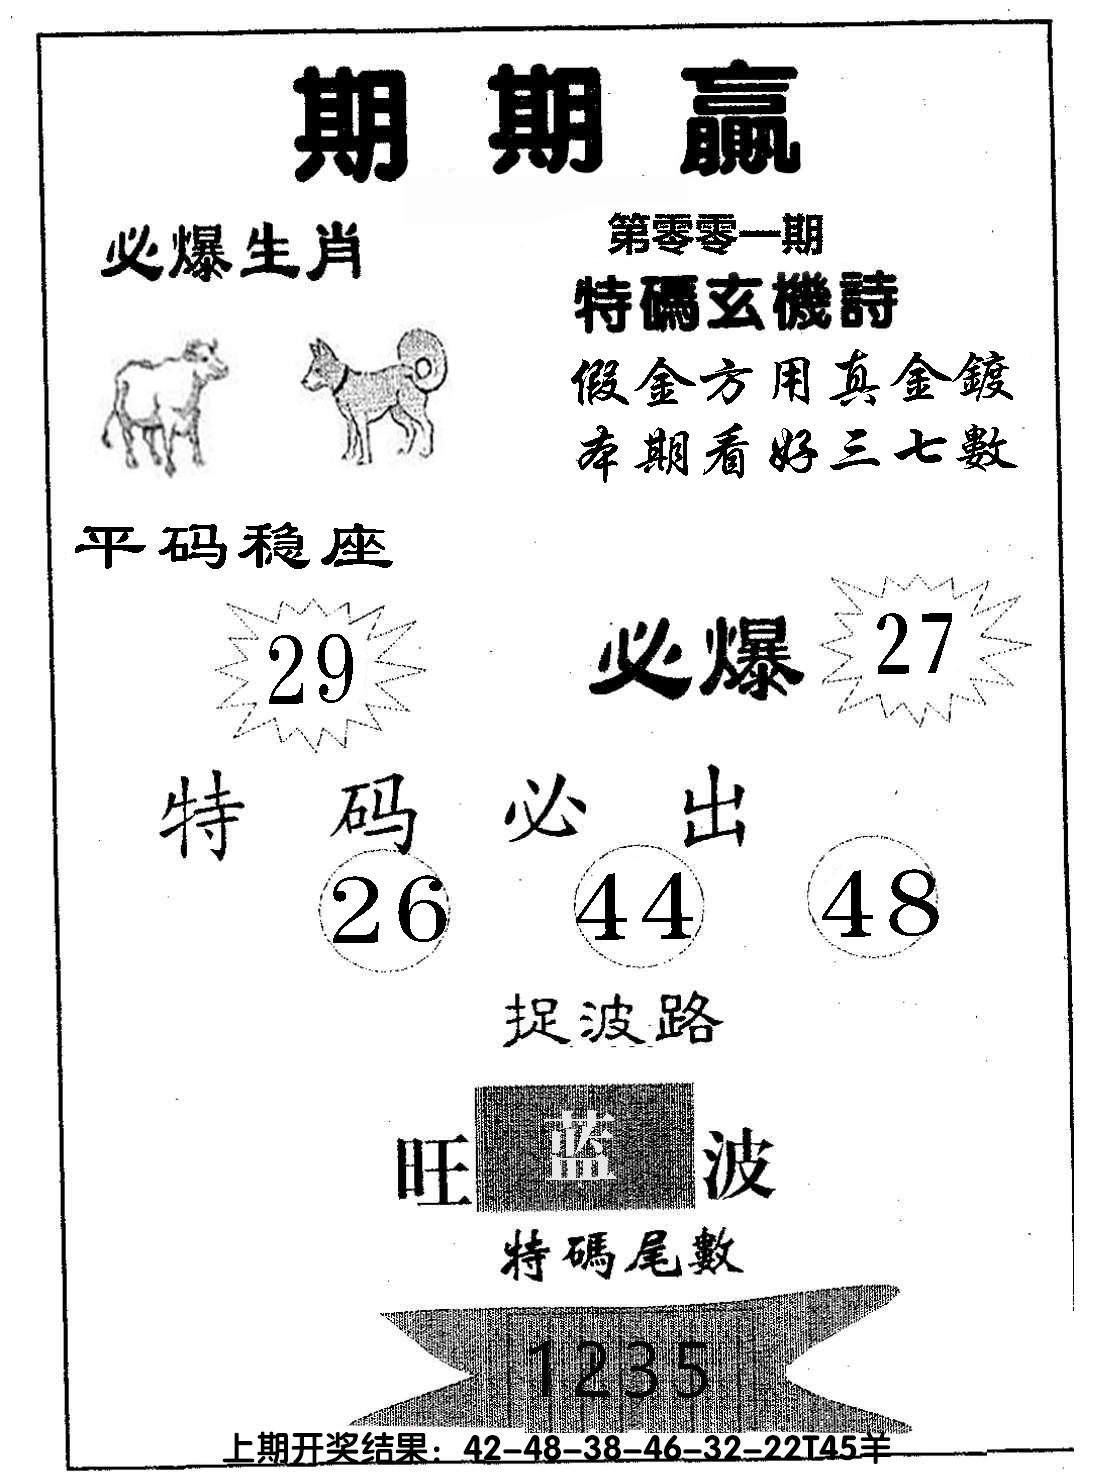 期期赢
必爆生肖
第零零一期
特碼玄機詩
假金方用真金鍍
本期看好三七數
平码稳座
29
必爆 27
特码必出
26 44 48
捉波路
旺 蓝 波
特碼尾數
1235
上期开奖结果：42-48-38-46-32-22T45羊